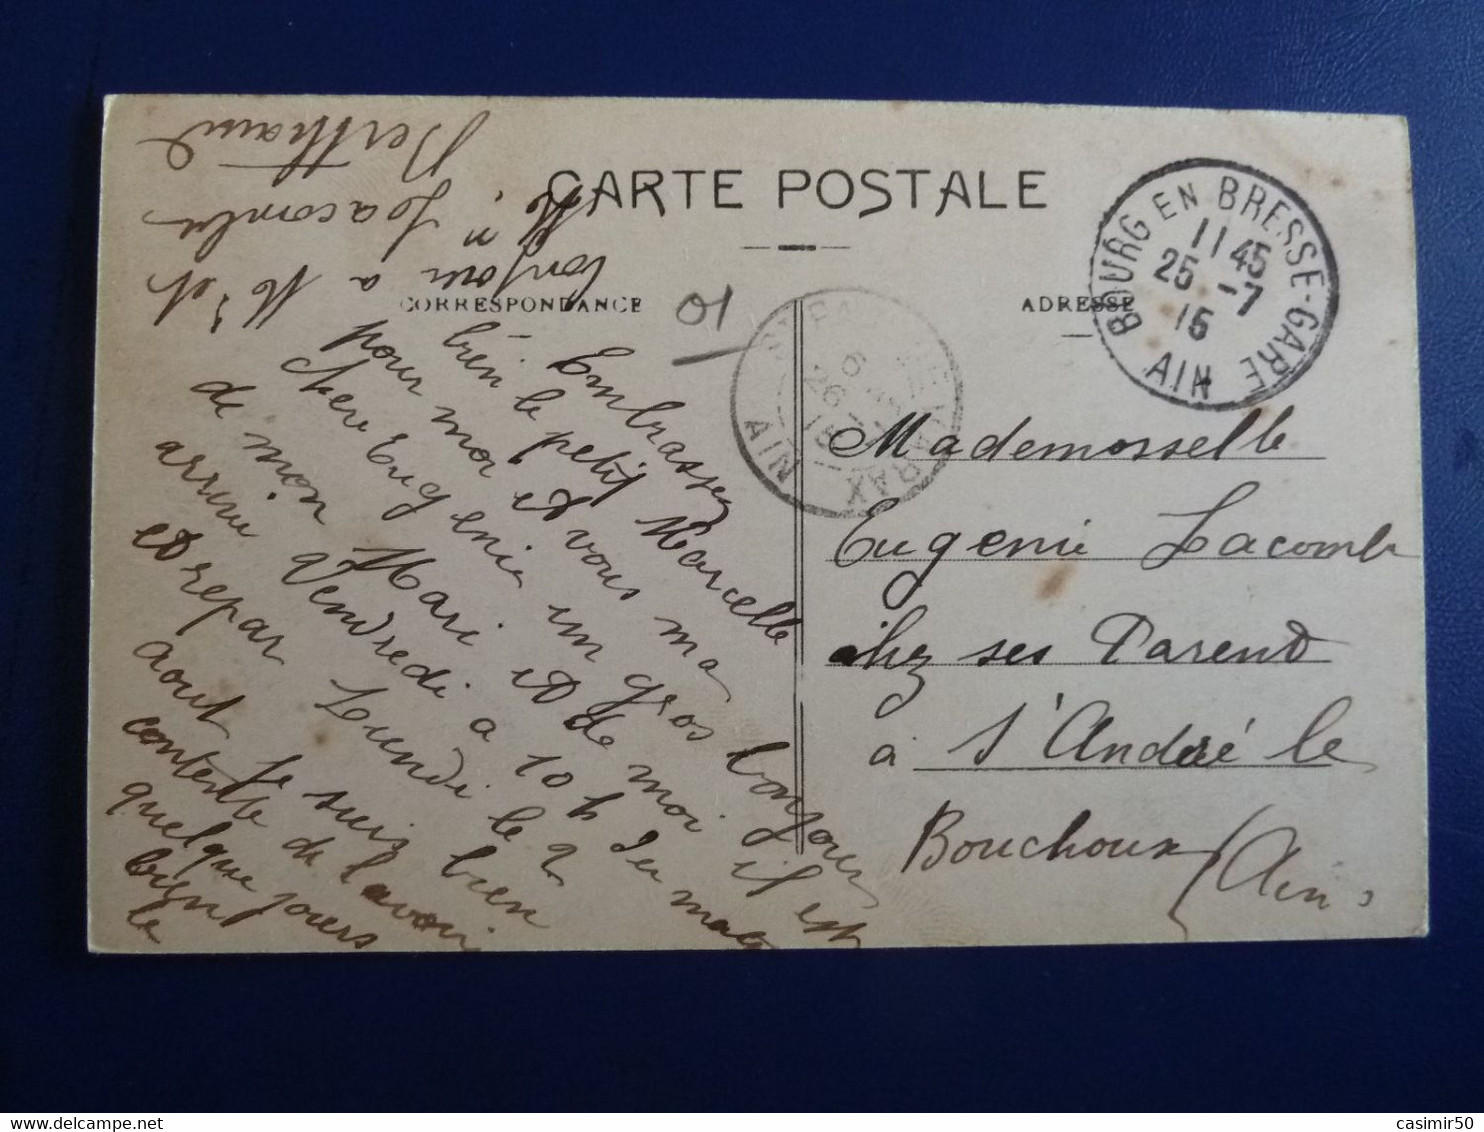 CARTE POSTALE
CORRESPONDANCE
ADRESSE
BOURG EN BRESSE-GARE
11 45
25 -7
15
AIN
26
15
AIN
01
Mademosselle
Eugenie Lacombe
chez ses Parend
à St André le
Bouchoux (Ain)
Embrassez
bien le petit Marcelle
pour moi et vous ma
chere Eugenie un gros bonjour
de mon Mari et de moi il est
arrivé Vendredi a 10 h du matin
et repar Lundi le 2
aout Je suis bien
contente de l'avoir
quelque jours
bien le
bonjour a Md et
Mr Lacombe
Berthaud
casimir50